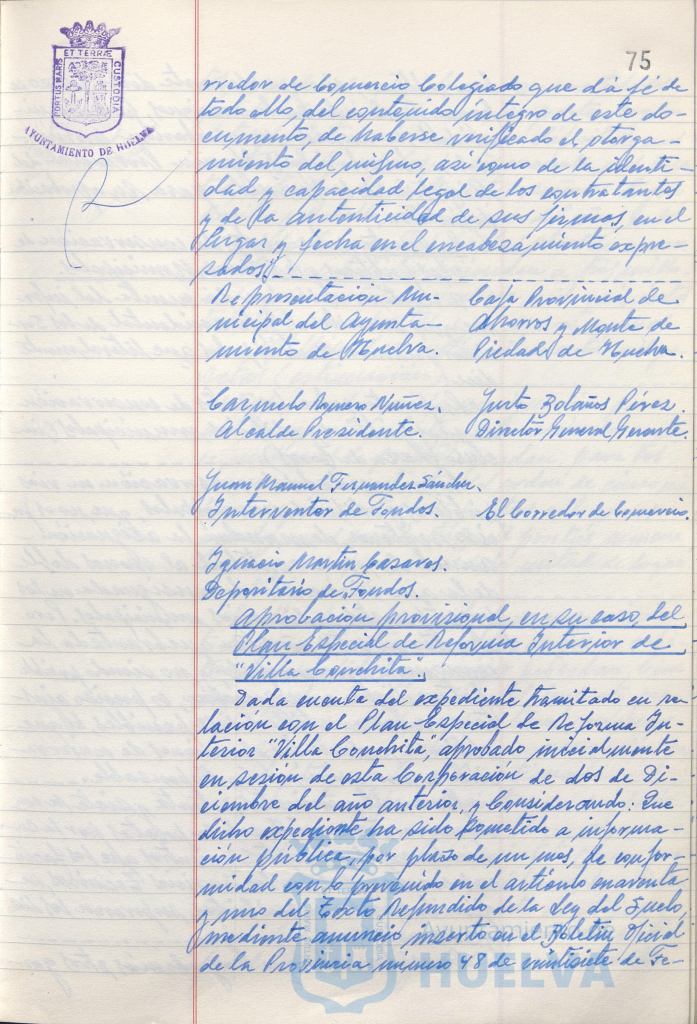 75
PORTUS MARIS
ET TERRÆ
CUSTODIA
AYUNTAMIENTO DE HUELVA
rredor de Comercio Colegiado que dá fé de
todo ello, del contenido íntegro de este do-
cumento, de haberse verificado el otorga-
miento del mismo, así como de la identi-
dad y capacidad legal de los contratantos
y de la autenticidad de sus firmas, en el
lugar y fecha en el encabezamiento expre-
sados".
Representación Mu-
nicipal del Ayunta-
miento de Huelva.
Caja Provincial de
Ahorros y Monte de
Piedad de Huelva.
Carmelo Romero Núñez.
Alcalde Presidente.
Justo Bolaños Pérez.
Director General Gerente.
Juan Manuel Fernandez Sánchez.
Interventor de Fondos.
El Corredor de Comercio.
Ignacio Martín Cazares.
Depositario de Fondos.
Aprobación provisional, en su caso, del
Plan Especial de Reforma Interior de
"Villa Conchita".
Dada cuenta del expediente tramitado en re-
lación con el Plan Especial de Reforma In-
terior "Villa Conchita", aprobado inicialmente
en sesión de esta Corporación de dos de Di-
ciembre del año anterior, y Considerando: Que
dicho expediente ha sido sometido a informa-
ción pública, por plazo de un mes, de confor-
midad con lo prevenido en el artículo cuarenta
y uno del Texto Refundido de la Ley del Suelo,
mediante anuncio inserto en el Boletín Oficial
de la Provincia número 48 de veintisiete de Fe-
Ayuntamiento de
HUELVA